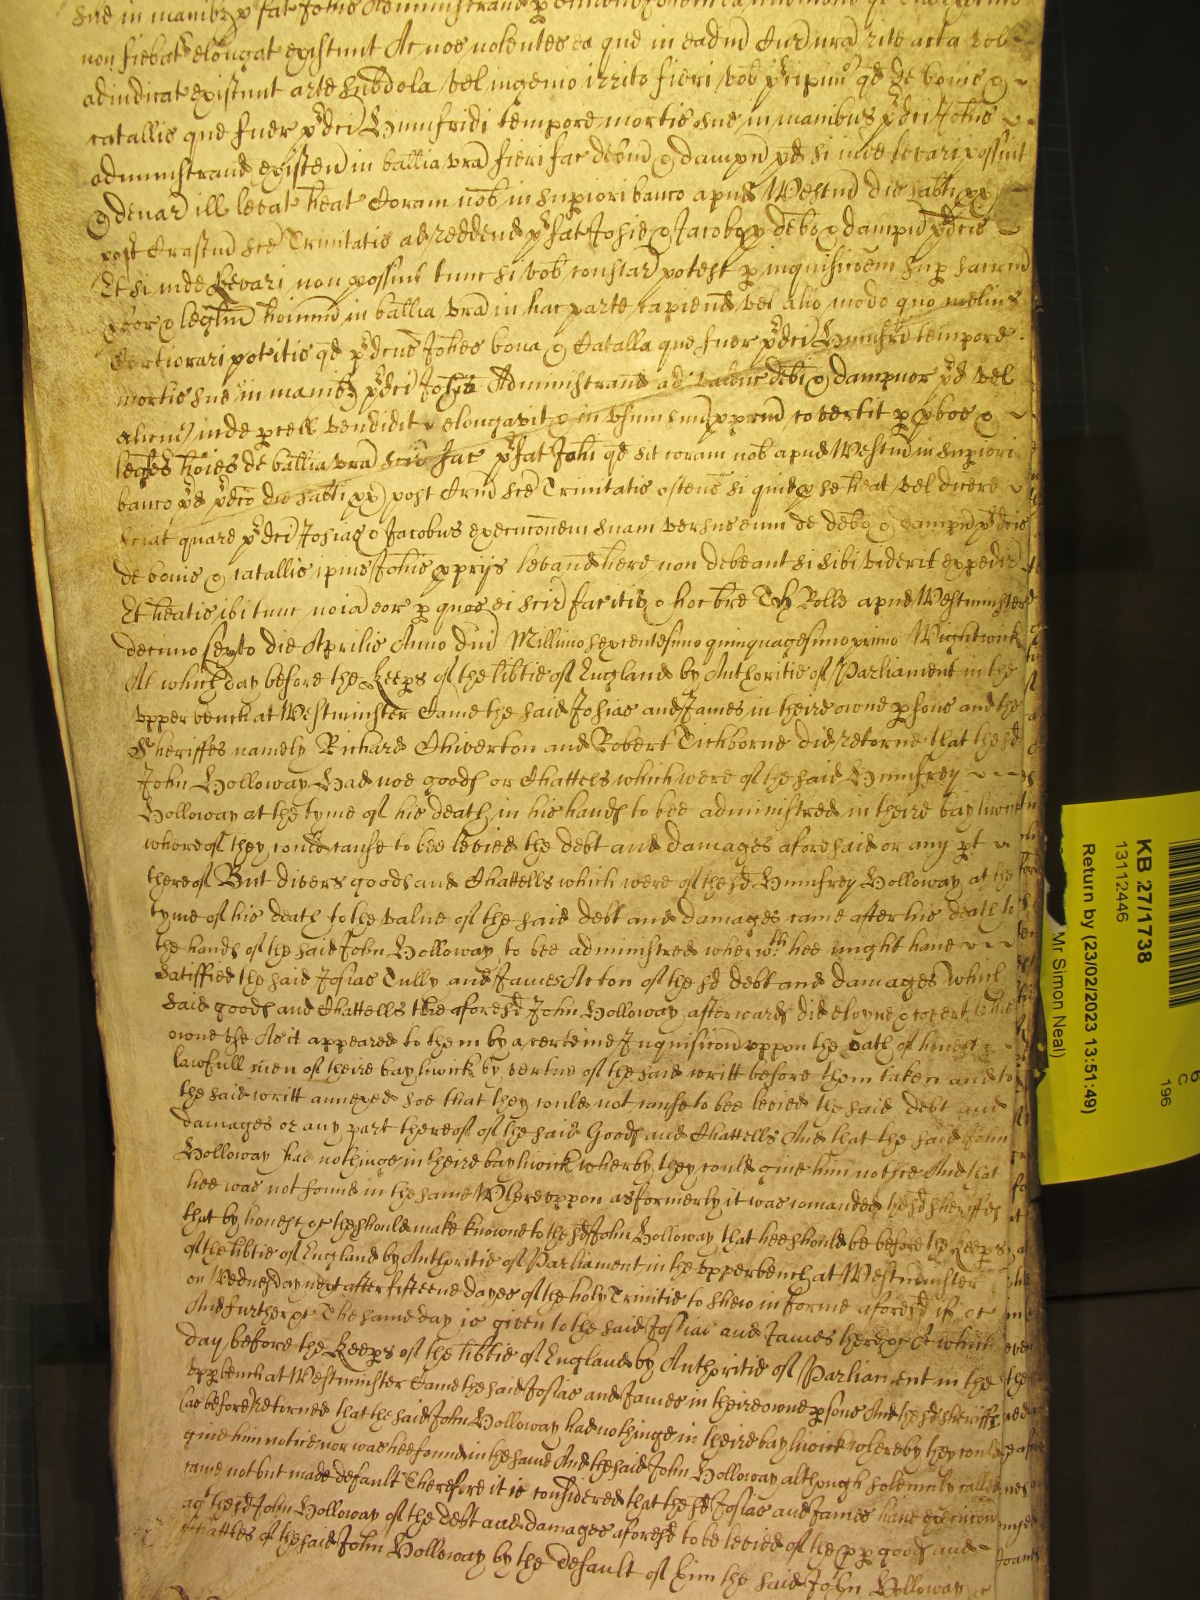 sue in manibz p'fat Johis Administrand
non fiebat elongat existunt Ac nos nolentes ea que in eadm Cur nra rite acta
adiudicat existunt arte subdola vel ingenio irrito fieri vob p'cipim' qd de bonis &
catallis que fuer p'dci Humfridi tempore mortis sue in manibus p'dci Johis
administrand existen in ballia vra fieri fac debm & dampn p'd si inde levari possint
& denar ill levat heat Coram nob in supiori banco apud Westm die
post Crastm sce Trinitatis ad reddend p'fat Josie & Jacobo p debo & dampn p'dcis
Et si inde levari non possint tunc si vob constar potest p inquisicoem sup sacrm
pbor & leglm hoinum in ballia vra in hac parte capiend vel alio modo quo melius
Certiorari potitis qd p'dcus Johes bona & Catalla que fuer p'dci Humfri tempore
mortis sue in manibz p'dci Johis Administrand ad valenc debi & dampnor p'd vel
alicui' inde pcell vendidit & elongavit & in vsum suu pprm covertit p pbos &
legles hoies de ballia vra scire fac p'fat Johi qd sit coram nob apud Westm in supiori
banco p'd p'dco die post Crm sce Trinitatis ostens si quid p se heat vel dicere
sciat quare p'dci Josias & Jacobus execuconem suam versus eum de debo & dampn p'dcis
de bonis & catallis ipius Johis pprijs levand here non debeant si sibi viderit expedir
Et heatis ibi tunc noia eor p quos ei scire fecitis & hoc bre T H Rolle apud Westminster
decimo sexto die Aprilis Anno dni Millimo sexcentesimo quinquagesimo primo Wightwick
At which day before the Keeps of the libtie of England by Authoritie of Parliament in the
vpper bench at Westminster Came the said Josias and James in theire owne psons and the
Sheriffes namely Richard Chiverton and Robert Tichborne did retorne that the sd
John Holloway Had noe goods or Chattels which were of the said Humfrey
Holloway at the tyme of his death in his hands to bee administred in theire bayliwick
whereof they could cause to bee levied the debt and damages aforesaid or any pt
thereof But divers goods and Chattells which were of the sd Humfrey Holloway at the
tyme of his death to the value of the said debt and damages came after his death to
the hands of the said John Holloway to bee administred wherwth hee might have
satisfied the said Josias Tully and James Acton of the sd debt and damages which
said goods and Chattells the aforesd John Holloway afterwards did eloyne & covert to his
owne vse As it appeared to them by a certeine Inquisicon vppon the oath of honest &
lawfull men of theire bayliwick by vertue of the said writt before them taken and to
the said writt annexed soe that they could not cause to bee levied the said debt and
damages or any part thereof of the said Goods and Chattells And that the said John
Holloway had nothinge in theire bayliwick wherby they could give him notice And that
hee was not found in the same Whereuppon as formerly it was comanded the sd sheriffes
that by honest &c they should make knowne to the sd John Holloway that hee should be before the Keeps
of the libtie of England by Authoritie of Parliament in the vpper bench at Westminster
on Wednesday next after fifteene dayes of the holy Trinitie to shew in forme aforesd if &c
And further &c The same day is given to the said Josias and James there &c At which
day before the Keeps of the libtie of England by Authoritie of Parliament in the
vpper bench at Westminster Came the said Josias and James in theire owne psons And the sd sheriffes
(as before) retorned that the said John Holloway had nothinge in theire bayliwick whereby they could
give him notice nor was hee found in the same And the said John Holloway although solemnly called
came not but made default Therefore it is considered that the sd Josias and James have execucon
agt the sd John Holloway of the debt and damages aforesd to be levied of the pp goods and
Chattles of the said John Holloway by the default of him the said John Holloway &c
KB 27/1738
13112446
Return by (23/02/2023 13:51:49)
Mr Simon Neal)
C
196